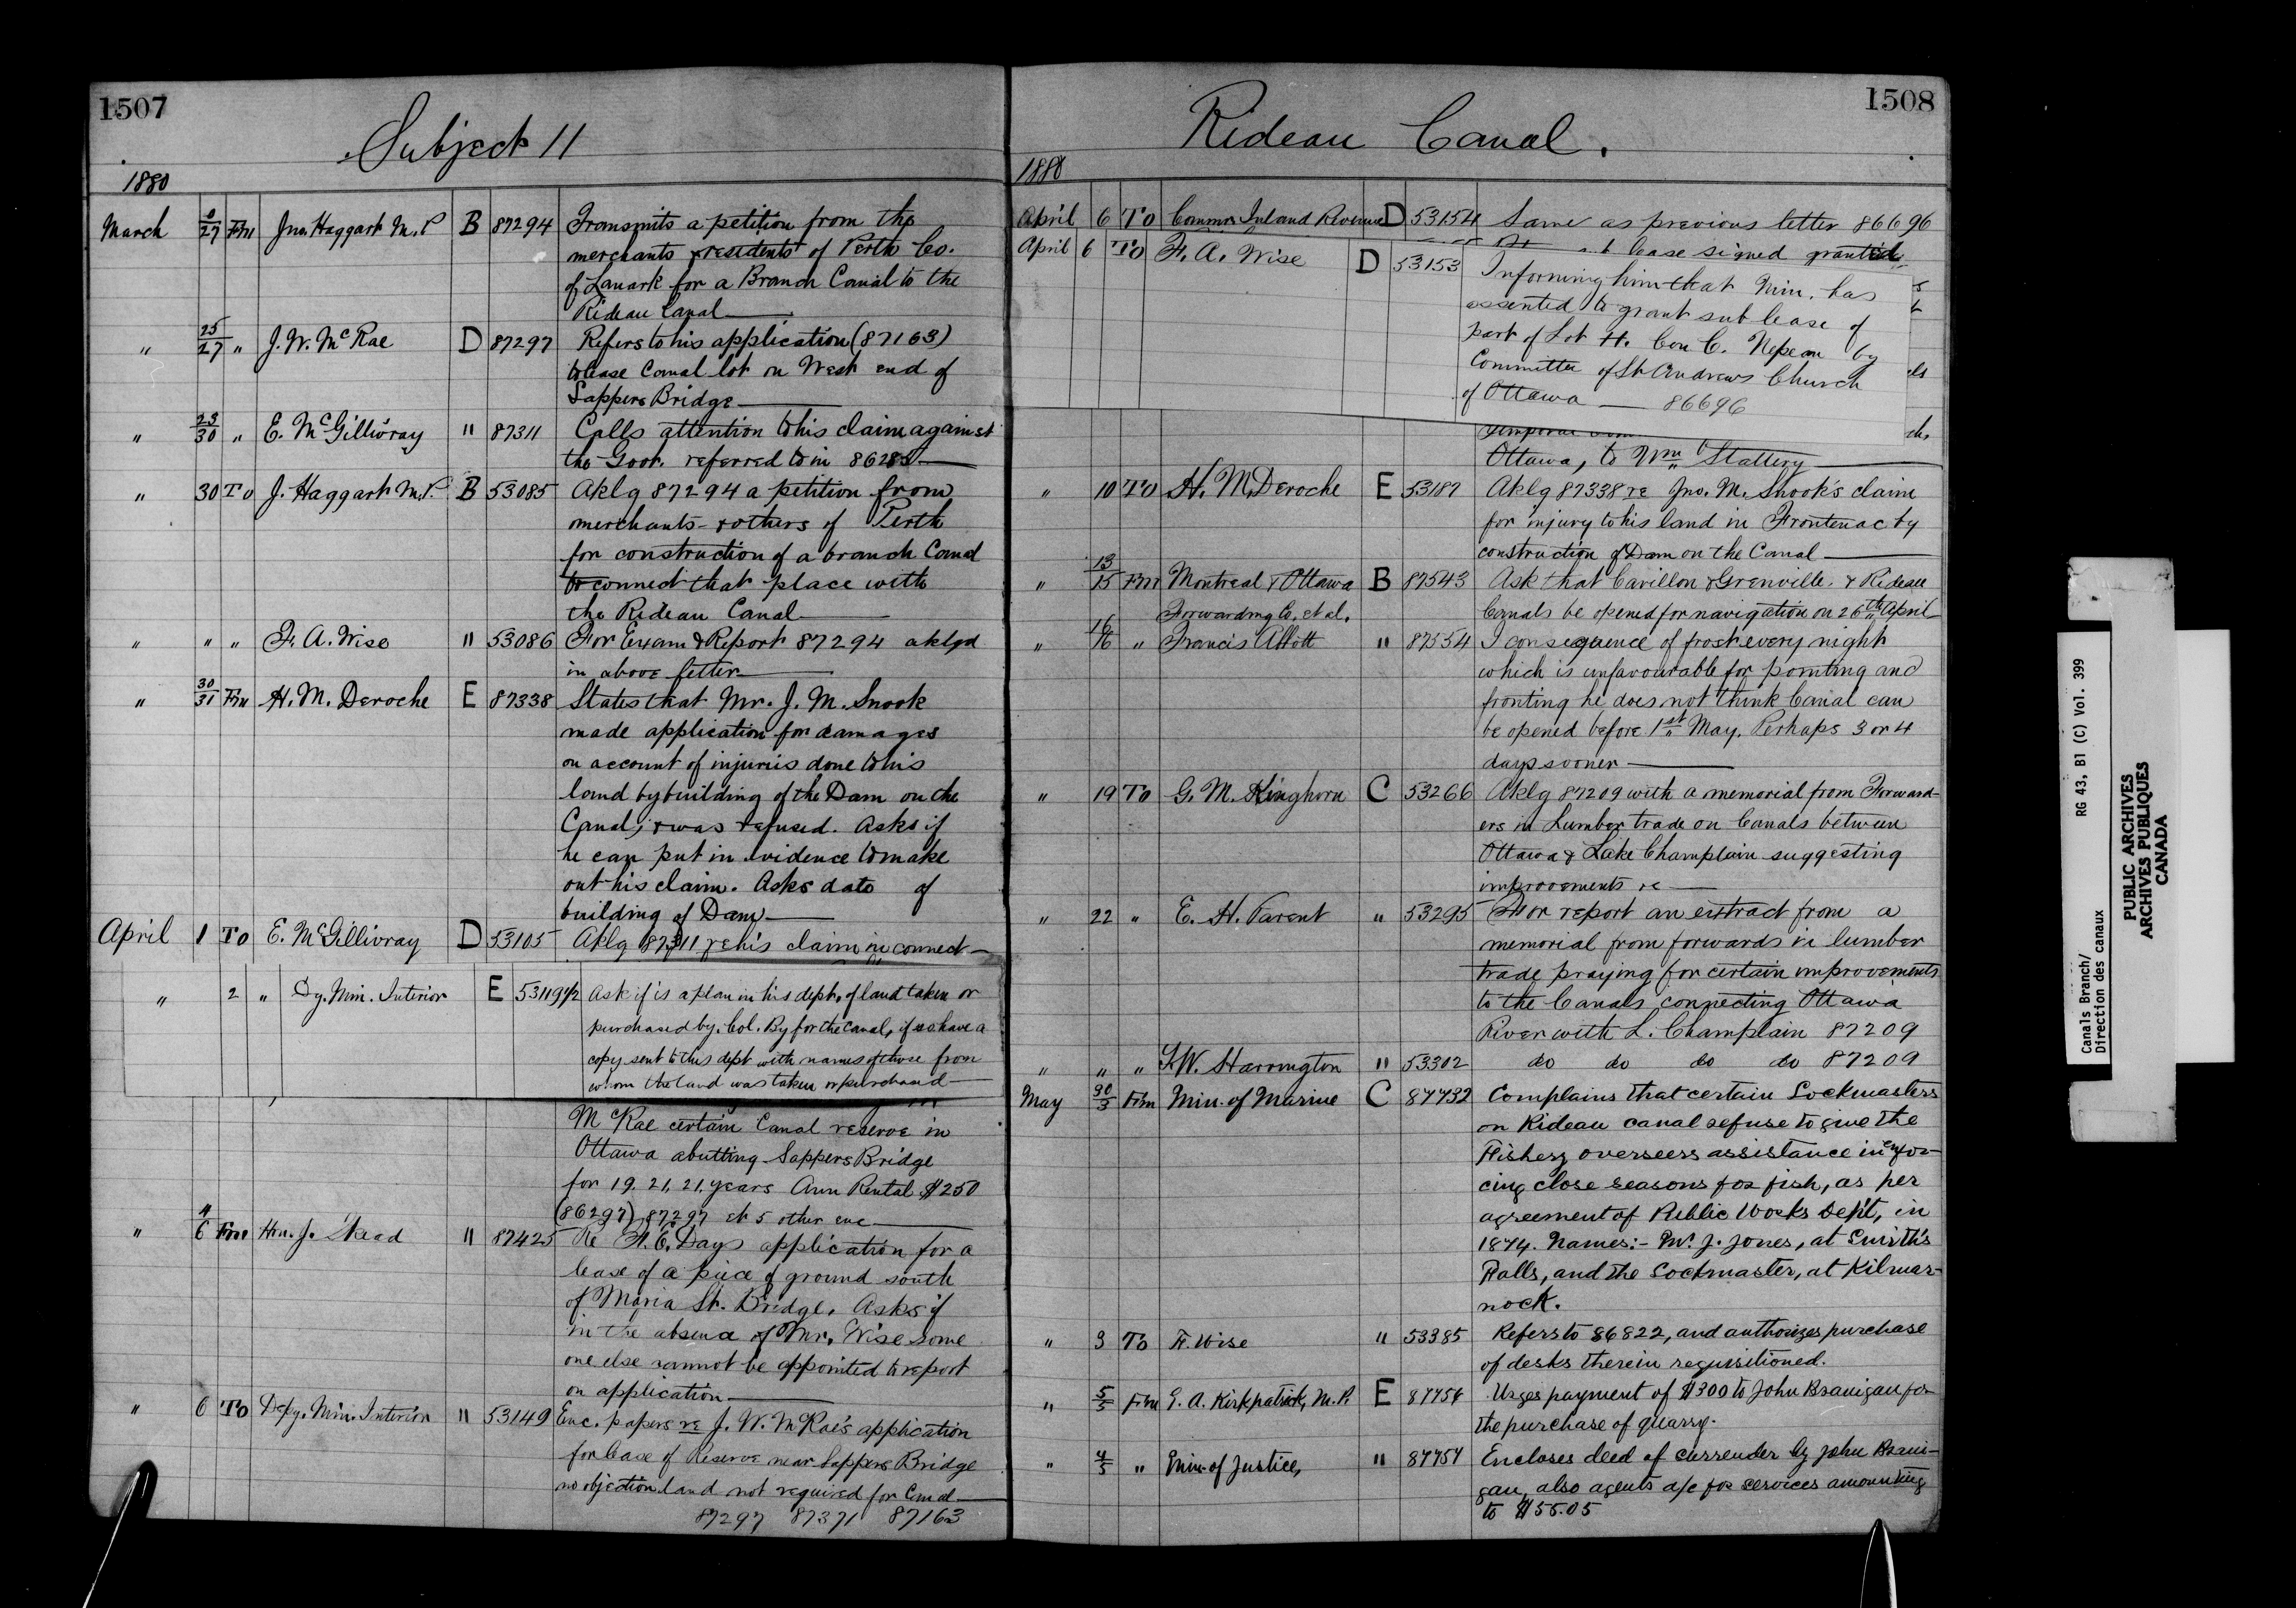 1507
Subject 11
1880
March 9/27 Frm Jno. Haggart M.P B 87294 Transmits a petition from the
merchants & residents of Perth Co.
of Lanark for a Branch Canal to the
Rideau Canal
" 25/27 " J. W. McRae D 87297 Refers to his application (87163)
to lease Canal lot on West end of
Sappers Bridge
" 23/30 " E. McGillivray " 87311 Calls attention to his claim against
the Govt. referred to in 86285
" 30 To J. Haggart M.P. B 53085 Aklg 87294 a petition from
merchants & others of Perth
for construction of a branch Canal
to connect that place with
the Rideau Canal
" " " F. A. Wise " 53086 For Exam & Report 87294 aklgd
in above letter
" 30/31 Frm H. M. Deroche E 87338 States that Mr. J. M. Snook
made application for damages
on account of injuries done to his
land by building of the Dam on the
Canal, & was refused. Asks if
he can put in evidence to make
out his claim. Asks date of
building of Dam
April 1 To E. McGillivray D 53105 Aklg 87311 re his claim in connect-
" 2 " Dy. Min. Interior E 53119 1/2 Ask if is a plan in his dept. of land taken or
purchased by Col. By for the Canal, if so have a
copy sent to this dept with names of those from
whom the land was taken or purchased
McRae certain Canal reserve in
Ottawa abutting Sappers Bridge
for 19. 21. 21. years Ann Rental $250
(86297) 87297 et 5 other enc
" 4/6 Frm Hon. J. Skead " 87425 Re H. C. Days application for a
lease of a piece of ground south
of Maria St. Bridge. Asks if
in the absence of Mr. Wise some
one else cannot be appointed to report
on application
" 6 To Depy. Min. Interior " 53149 Enc. papers re J. W. McRae's application
for lease of Reserve near Sappers Bridge
no objection land not required for Canal
87297 87371 87163
1508
Rideau Canal.
1880
April 6 To Commr. Inland Revenue D 53154 Same as previous letter 86696
lease signed granted
April 6 To F. A. Wise D 53153 Informing him that Min. has
assented to grant sub lease of
part of Lot H. Con C. Nepean by
Committee of St Andrews Church
of Ottawa 86696
Ottawa, to Wm Slattery
" 10 To H. M. Deroche E 53187 Aklg 87338 re Jno. M. Snook's claim
for injury to his land in Frontenac by
construction of Dam on the Canal
" 13/15 Frm Montreal & Ottawa B 87543 Ask that Carillon & Grenville. & Rideau
Forwarding Co. et al. Canals be opened for navigation on 26th April
" 16/16 " Francis Abbott " 87554 I consequence of frost every night
which is unfavourable for pointing and
fronting he does not think Canal can
be opened before 1st May. Perhaps 3 or 4
days sooner
" 19 To G. M. Kinghorn C 53266 Aklg 87209 with a memorial from Forward-
ers in Lumber trade on Canals between
Ottawa & Lake Champlain suggesting
improvements re
" 22 " E. H. Parent " 53295 For report an extract from a
memorial from forwards in lumber
trade praying for certain improvements
to the Canals connecting Ottawa
River with L. Champlain 87209
" " " T.W. Harrington " 53302 do do do do 87209
May 30/3 Frm Min. of Marine C 87732 Complains that certain Lockmasters
on Rideau canal refuse to give the
Fishery overseers assistance in enfor-
cing close seasons for fish, as per
agreement of Public Works Dep't, in
1874. Names:- Mr. J. Jones, at Smith's
Falls, and the Lockmaster, at Kilmar-
nock.
" 3 To F. Wise " 53385 Refers to 86822, and authorizes purchase
of desks therein requisitioned.
" 5/5 Frm G. A. Kirkpatrick, M.P. E 87756 Urges payment of $300 to John Branigan for
the purchase of quarry.
" 4/5 " Min. of Justice, " 87757 Encloses deed of surrender by John Brani-
gan, also agents a/c for services amounting
to $55.05
Canals Branch/
Direction des canaux
RG 43, B1 (C) Vol. 399
PUBLIC ARCHIVES
ARCHIVES PUBLIQUES
CANADA